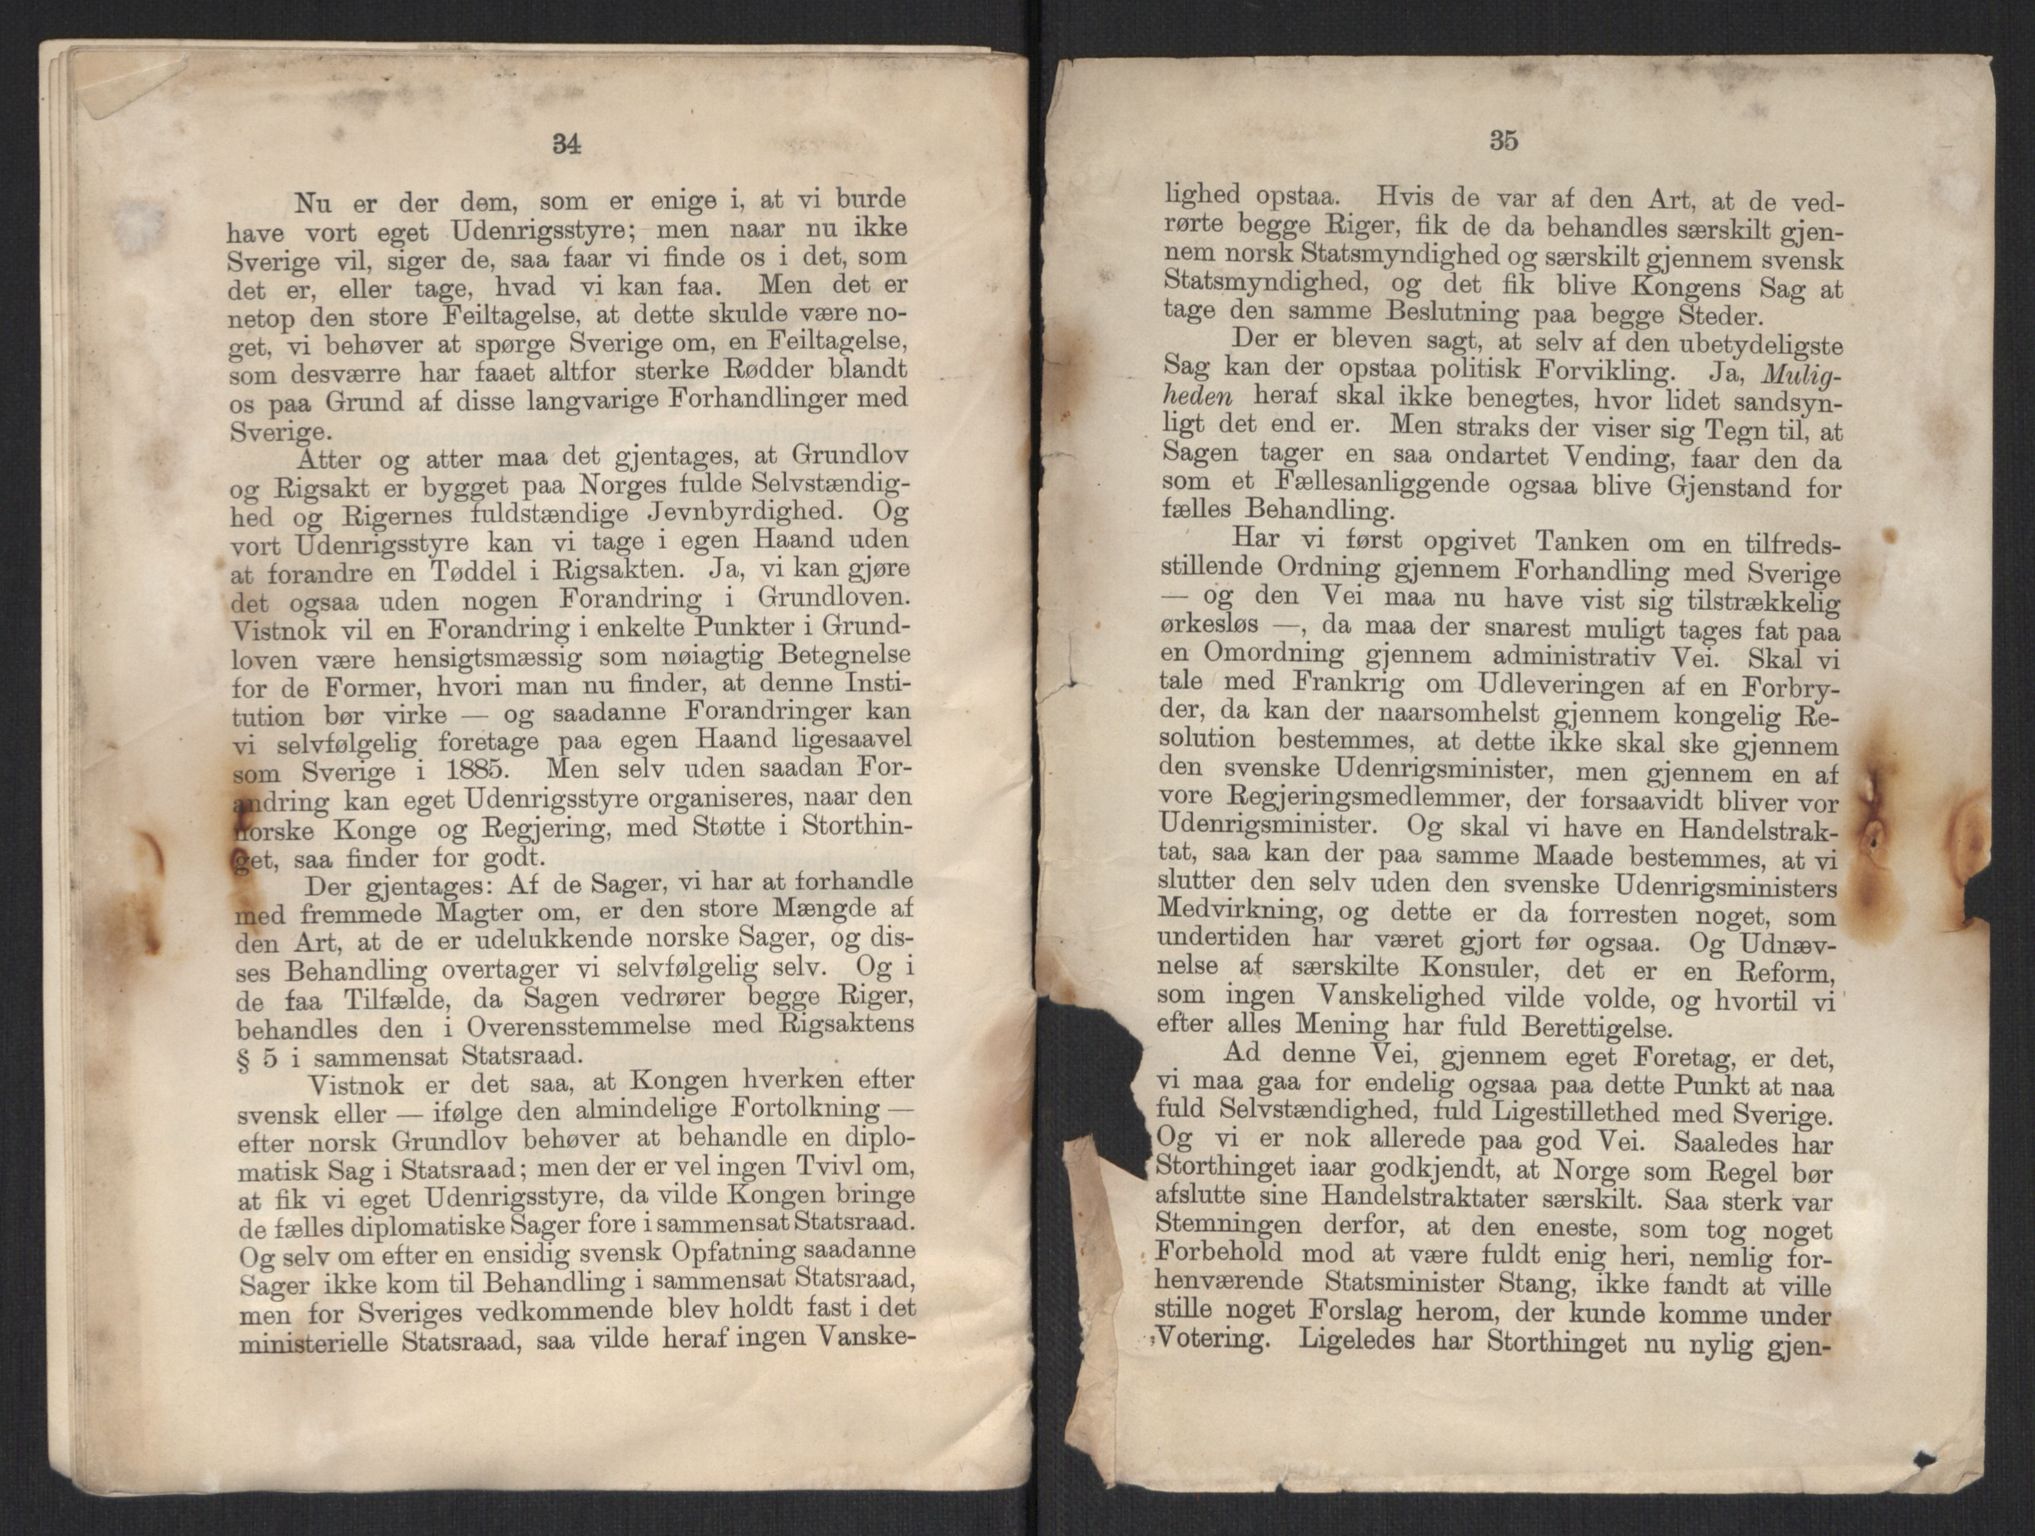 34
Nu er der dem, som er enige i, at vi burde
have vort eget Udenrigsstyre; men naar nu ikke
Sverige vil, siger de, saa faar vi finde os i det, som
det er, eller tage, hvad vi kan faa. Men det er
netop den store Feiltagelse, at dette skulde være no-
get, vi behøver at spørge Sverige om, en Feiltagelse,
som desværre har faaet altfor sterke Rødder blandt
os paa Grund af disse langvarige Forhandlinger med
Sverige.
Atter og atter maa det gjentages, at Grundlov
og Rigsakt er bygget paa Norges fulde Selvstændig-
hed og Rigernes fuldstændige Jevnbyrdighed. Og
vort Udenrigsstyre kan vi tage i egen Haand uden
at forandre en Tøddel i Rigsakten. Ja, vi kan gjøre
det ogsaa uden nogen Forandring i Grundloven.
Vistnok vil en Forandring i enkelte Punkter i Grund-
loven være hensigtsmæssig som nøiagtig Betegnelse
for de Former, hvori man nu finder, at denne Insti-
tution bør virke — og saadanne Forandringer kan
vi selvfølgelig foretage paa egen Haand ligesaavel
som Sverige i 1885. Men selv uden saadan For-
andring kan eget Udenrigsstyre organiseres, naar den
norske Konge og Regjering, med Støtte i Storthin-
get, saa finder for godt.
Der gjentages: Af de Sager, vi har at forhandle
med fremmede Magter om, er den store Mængde af
den Art, at de er udelukkende norske Sager, og dis-
ses Behandling overtager vi selvfølgelig selv. Og i
de faa Tilfælde, da Sagen vedrører begge Riger,
behandles den i Overensstemmelse med Rigsaktens
§ 5 i sammensat Statsraad.
Vistnok er det saa, at Kongen hverken efter
svensk eller — ifølge den almindelige Fortolkning —
efter norsk Grundlov behøver at behandle en diplo-
matisk Sag i Statsraad; men der er vel ingen Tvivl om,
at fik vi eget Udenrigsstyre, da vilde Kongen bringe
de fælles diplomatiske Sager fore i sammensat Statsraad.
Og selv om efter en ensidig svensk Opfatning saadanne
Sager ikke kom til Behandling i sammensat Statsraad,
men for Sveriges vedkommende blev holdt fast i det
ministerielle Statsraad, saa vilde heraf ingen Vanske-
35
lighed opstaa. Hvis de var af den Art, at de ved-
rørte begge Riger, fik de da behandles særskilt gjen-
nem norsk Statsmyndighed og særskilt gjennem svensk
Statsmyndighed, og det fik blive Kongens Sag at
tage den samme Beslutning paa begge Steder.
Der er bleven sagt, at selv af den ubetydeligste
Sag kan der opstaa politisk Forvikling. Ja, Mulig-
heden heraf skal ikke benegtes, hvor lidet sandsyn-
ligt det end er. Men straks der viser sig Tegn til, at
Sagen tager en saa ondartet Vending, faar den da
som et Fællesanliggende ogsaa blive Gjenstand for
fælles Behandling.
Har vi først opgivet Tanken om en tilfreds-
stillende Ordning gjennem Forhandling med Sverige
— og den Vei maa nu have vist sig tilstrækkelig
ørkesløs —, da maa der snarest muligt tages fat paa
en Omordning gjennem administrativ Vei. Skal vi
tale med Frankrig om Udleveringen af en Forbry-
der, da kan der naarsomhelst gjennem kongelig Re-
solution bestemmes, at dette ikke skal ske gjennem
den svenske Udenrigsminister, men gjennem en af
vore Regjeringsmedlemmer, der forsaavidt bliver vor
Udenrigsminister. Og skal vi have en Handelstrak-
tat, saa kan der paa samme Maade bestemmes, at vi
slutter den selv uden den svenske Udenrigsministers
Medvirkning, og dette er da forresten noget, som
undertiden har været gjort før ogsaa. Og Udnæv-
nelse af særskilte Konsuler, det er en Reform,
som ingen Vanskelighed vilde volde, og hvortil vi
efter alles Mening har fuld Berettigelse.
Ad denne Vei, gjennem eget Foretag, er det,
vi maa gaa for endelig ogsaa paa dette Punkt at naa
fuld Selvstændighed, fuld Ligestillethed med Sverige.
Og vi er nok allerede paa god Vei. Saaledes har
Storthinget iaar godkjendt, at Norge som Regel bør
afslutte sine Handelstraktater særskilt. Saa sterk var
Stemningen derfor, at den eneste, som tog noget
Forbehold mod at være fuldt enig heri, nemlig for-
henværende Statsminister Stang, ikke fandt at ville
stille noget Forslag herom, der kunde komme under
Votering. Ligeledes har Storthinget nu nylig gjen-